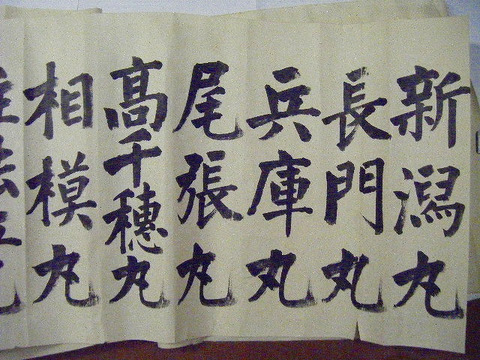 新潟丸
長門丸
兵庫丸
尾張丸
高千穗丸
相模丸